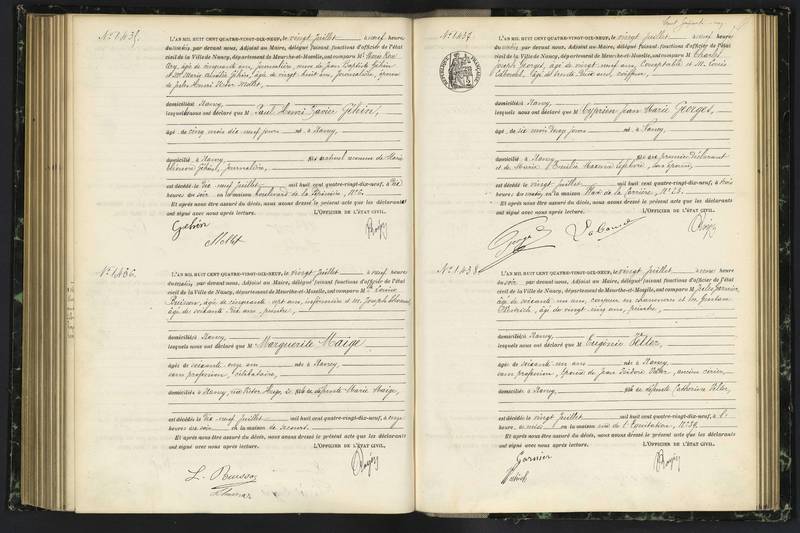 N° 1,435.
L'AN MIL HUIT CENT QUATRE-VINGT-DIX-NEUF, le vingt juillet à neuf heures
du matin, par devant nous, Adjoint au Maire, délégué faisant fonctions d'officier de l'état
civil de la Ville de Nancy, département de Meurthe-et-Moselle, ont comparu M
âgé de cinquante ans, journalier, de Jean Baptiste Géhin
et Marie Géhin, âgée de vingt huit ans, journalière, épouse
de Jules Henri Victor Mollet,
domiciliés à Nancy,
lesquels nous ont déclaré que M Paul Henri Xavier Géhin,
âgé de cinq mois dix neuf jours né à Nancy,
domicilié à Nancy, de Marie
Géhin, journalière,
est décédé le dix neuf juillet mil huit cent quatre-vingt-dix-neuf, à dix
heures du soir en la maison boulevard de la Pépinière, N°
Et après nous être assuré du décès, nous avons dressé le présent acte que les déclarants
ont signé avec nous après lecture. L'OFFICIER DE L'ÉTAT CIVIL.
Géhin
Mollet
N° 1,436.
L'AN MIL HUIT CENT QUATRE-VINGT-DIX-NEUF, le vingt juillet à neuf heures
du matin, par devant nous, Adjoint au Maire, délégué faisant fonctions d'officier de l'état
civil de la Ville de Nancy, département de Meurthe-et-Moselle, ont comparu M Louise
Buisson, âgée de cinquante sept ans, infirmière et M. Joseph
âgé de soixante dix ans, peintre,
domiciliés à Nancy,
lesquels nous ont déclaré que M Marguerite Maige
âgée de soixante ans née à Nancy,
sans profession, célibataire,
domiciliée à Nancy, rue Victor Hugo, fille de défunte Marie Maige,
est décédée le dix neuf juillet mil huit cent quatre-vingt-dix-neuf, à onze
heures du soir en la maison de secours.
Et après nous être assuré du décès, nous avons dressé le présent acte que les déclarants
ont signé avec nous après lecture. L'OFFICIER DE L'ÉTAT CIVIL.
L. Buisson
N° 1,437
L'AN MIL HUIT CENT QUATRE-VINGT-DIX-NEUF, le vingt juillet à neuf heures
du matin, par devant nous, Adjoint au Maire, délégué faisant fonctions d'officier de l'état
civil de la Ville de Nancy, département de Meurthe-et-Moselle, ont comparu M Charles
Joseph Georges, âgé de vingt neuf ans, comptable et M. Louis
âgé de trente deux ans, coiffeur,
domiciliés à Nancy,
lesquels nous ont déclaré que M Cyprien Jean Marie Georges,
âgé de six mois deux jours né à Nancy,
domicilié à Nancy, fils du premier déclarant
et de Marie Emilie Lefebvre, son épouse,
est décédé le vingt juillet mil huit cent quatre-vingt-dix-neuf, à trois
heures du matin en la maison Place de la Carrière, N° 28.
Et après nous être assuré du décès, nous avons dressé le présent acte que les déclarants
ont signé avec nous après lecture. L'OFFICIER DE L'ÉTAT CIVIL.
Georges
N° 1,438
L'AN MIL HUIT CENT QUATRE-VINGT-DIX-NEUF, le vingt juillet à heures
du soir, par devant nous, Adjoint au Maire, délégué faisant fonctions d'officier de l'état
civil de la Ville de Nancy, département de Meurthe-et-Moselle, ont comparu M Jules Garnier
âgé de soixante un ans, coupeur en chaussures et
âgé de vingt cinq ans, peintre,
domiciliés à Nancy,
lesquels nous ont déclaré que M Eugénie Veller,
âgée de soixante un ans née à Nancy,
sans profession, épouse de Jean Isidore ancien
domiciliée à Nancy, fille de défunte Catherine Veller,
est décédée le vingt juillet mil huit cent quatre-vingt-dix-neuf, à
heures en la maison rue de l'Equitation, N° 37.
Et après nous être assuré du décès, nous avons dressé le présent acte que les déclarants
ont signé avec nous après lecture. L'OFFICIER DE L'ÉTAT CIVIL.
Garnier